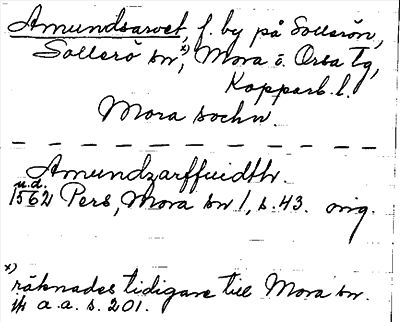 Amundsarvet, f. by på Sollerön,
Sollerö sn x), Mora o. Orsa tg,
Kopparb. l.
Mora sochn.
Amundzarffuidth.
u.d.
1562 Pers, Mora sn 1, s. 43. orig.
x)
räknades tidigare till Mora sn.
jfr a.a. s. 201.